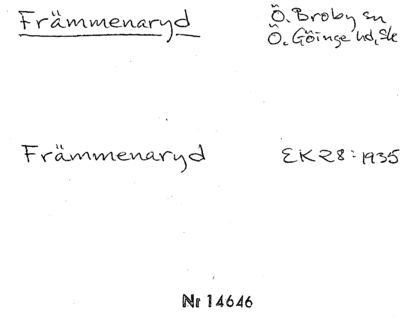 Främmenaryd Ö. Broby sn
Ö. Göinge hd, Sk
Främmenaryd EK28:1935
Nr 14646